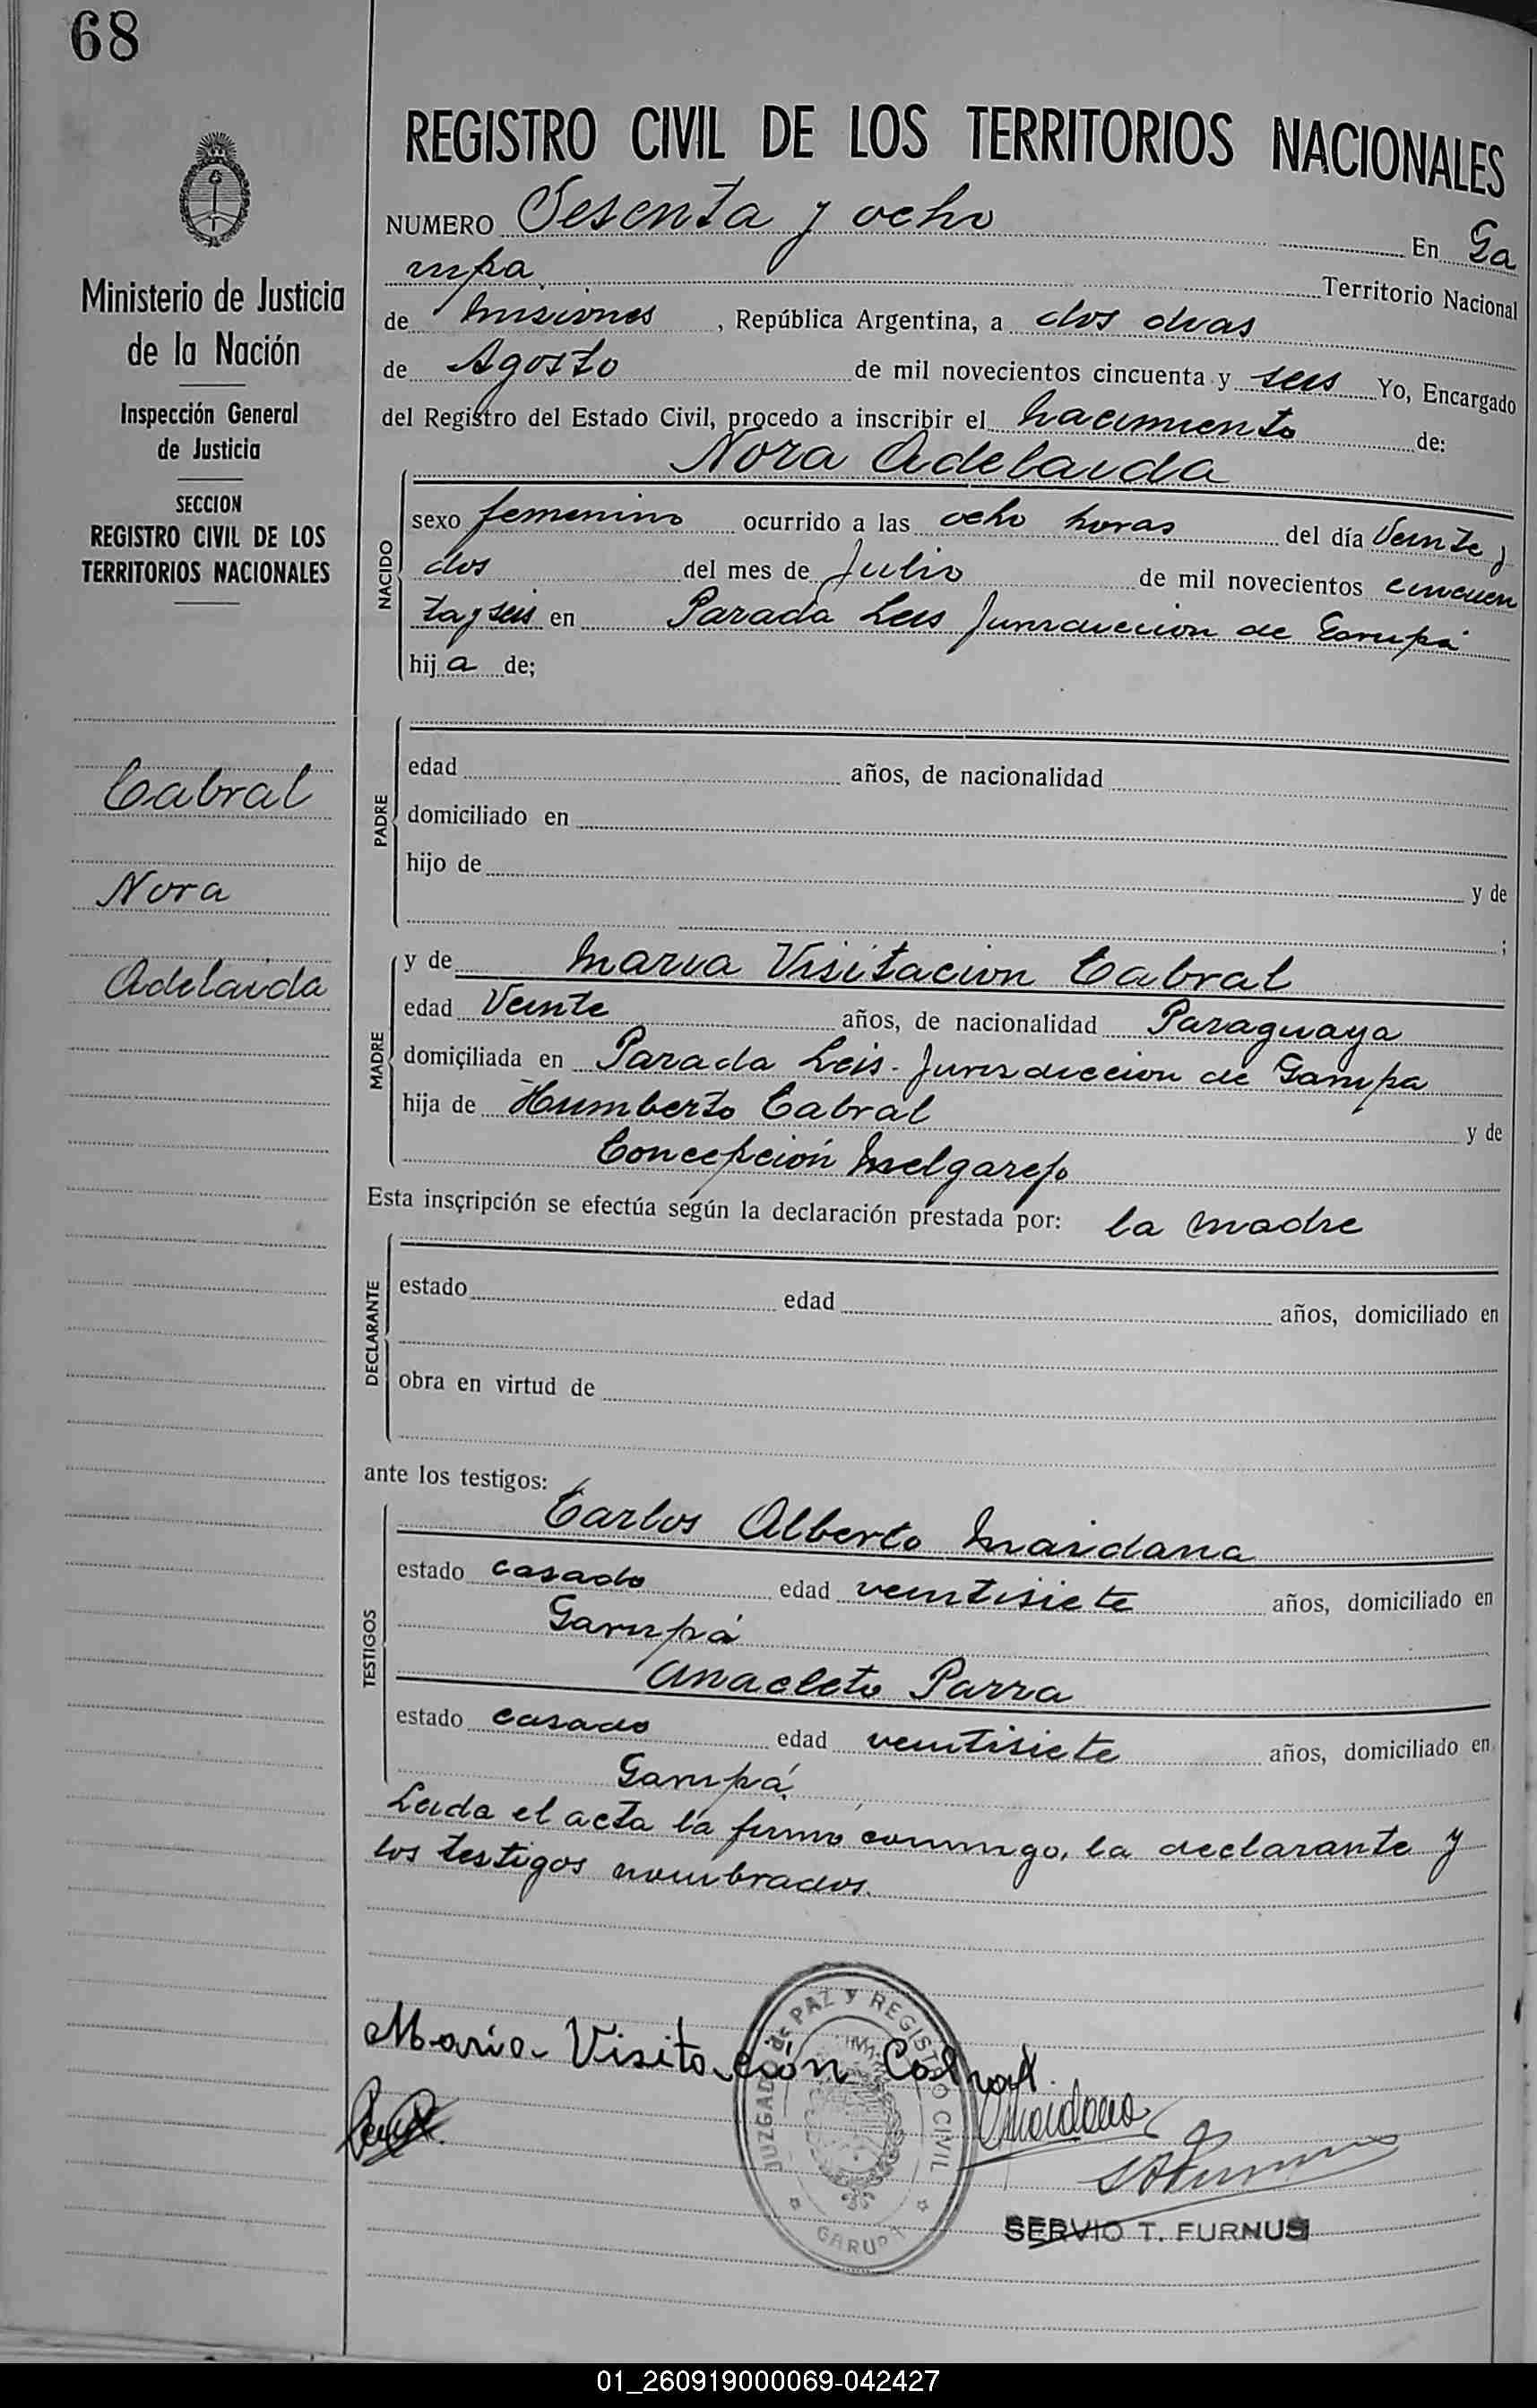 68
REGISTRO CIVIL DE LOS TERRITORIOS NACIONALES
NUMERO Sesenta y ocho En Ga
rupa Territorio Nacional
de Misiones , República Argentina, a dos dias
de Agosto de mil novecientos cincuenta y seis Yo, Encargado
del Registro del Estado Civil, procedo a inscribir el nacimiento de:
Ministerio de Justicia
de la Nación
Inspección General
de Justicia
SECCION
REGISTRO CIVIL DE LOS
TERRITORIOS NACIONALES
Cabral
Nora
Adelaida
NACIDO
Nora Adelaida
sexo femenino ocurrido a las ocho horas del día Veinte y
dos del mes de Julio de mil novecientos cincuen
ta y seis en Parada Leis Jurisdiccion de Garupá
hij a de;
PADRE
edad años, de nacionalidad
domiciliado en
hijo de y de
;
MADRE
y de Maria Visitacion Cabral
edad Veinte años, de nacionalidad Paraguaya
domiciliada en Parada Leis. Jurisdiccion de Garupa
hija de Humberto Cabral y de
Concepción Melgarejo
Esta inscripción se efectúa según la declaración prestada por: la madre
DECLARANTE
estado edad años, domiciliado en
obra en virtud de
ante los testigos:
TESTIGOS
Carlos Alberto Maidana
estado casado edad veintisiete años, domiciliado en
Garupá
Anacleto Parra
estado casado edad veintisiete años, domiciliado en
Garupá.
Leida el acta la firma conmigo, la declarante y
los testigos nombrados.
Maria Visitación Cabral.
JUZGADO de PAZ y REGISTRO CIVIL
GARUPA
Maidana
SERVIO T. FURNUS
01_260919000069-042427